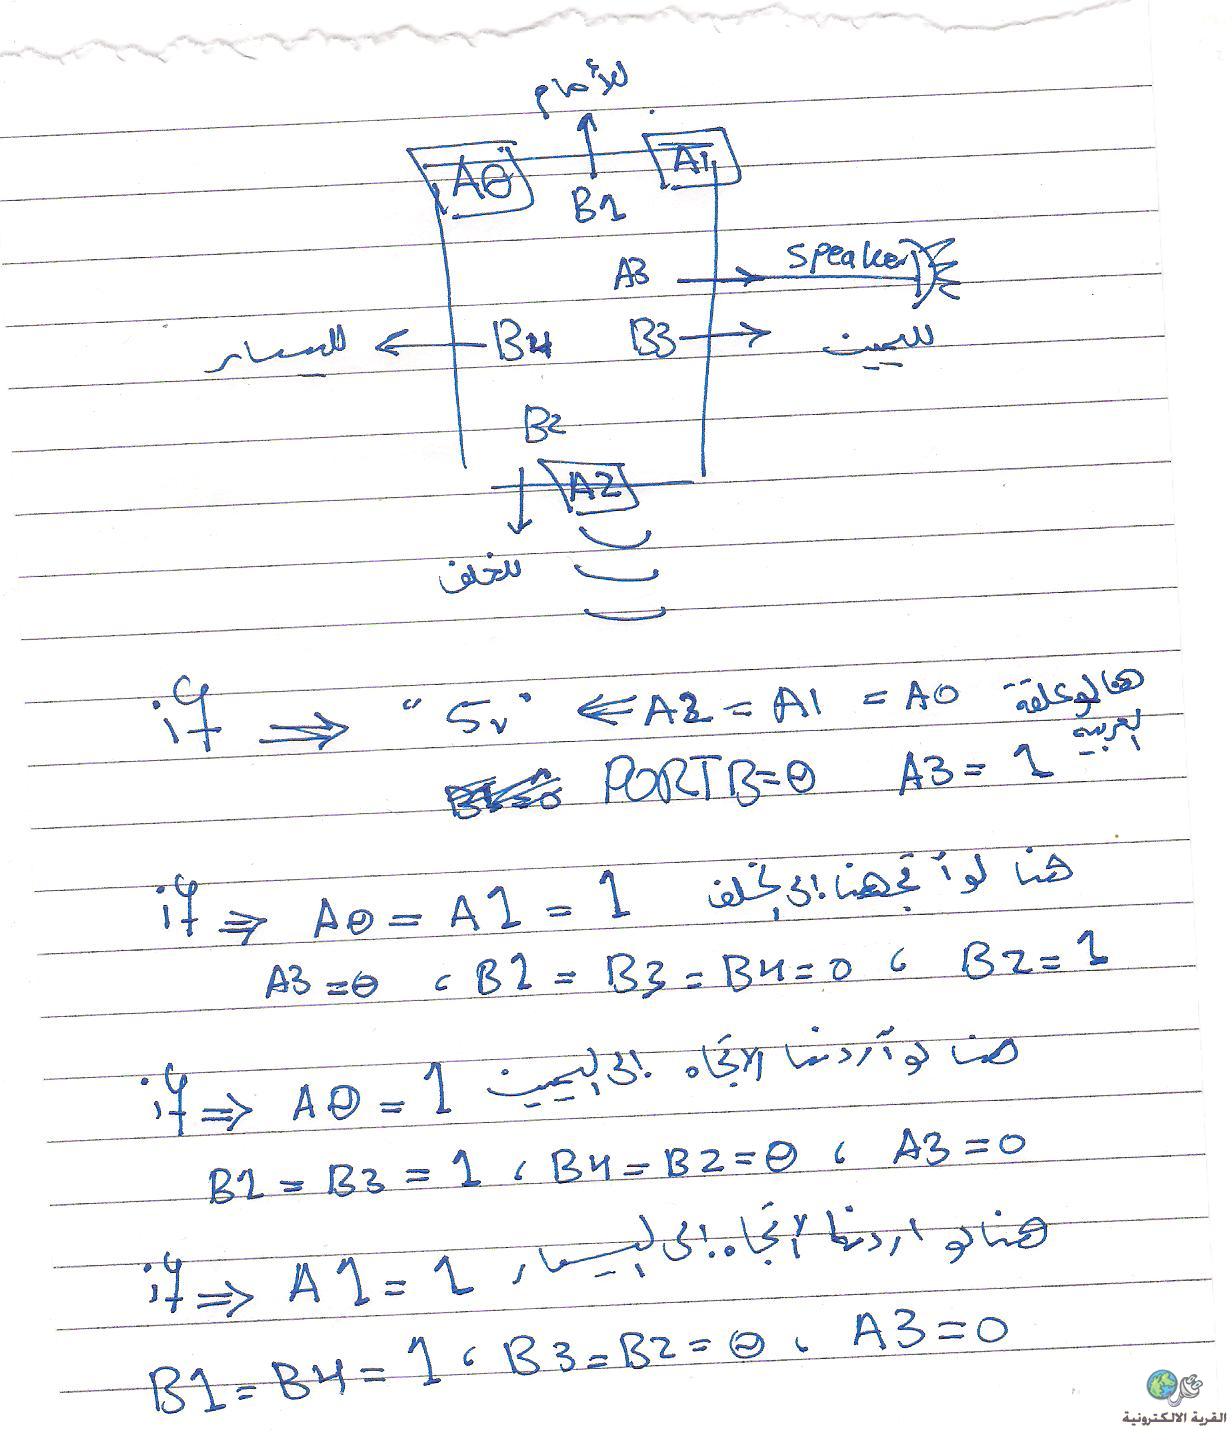 للأمام
A0 B1 A1
A3 speaker
لليسار B4 B3 لليمين
B2
A2
للخلف
if ⇒ "5v" ⇐ A2 = A1 = A0 هنا لو علقة
العربية
PORTB=0 A3=1
if ⇒ A0 = A1 = 1 هنا لو أتجهنا إلى الخلف
A3=0 ، B1 = B3 = B4=0 ، B2=1
if ⇒ A0 = 1 هنا لو أردنا الاتجاه إلى اليمين
B1 = B3 = 1 ، B4=B2=0 ، A3=0
if ⇒ A1 = 1 هنا لو اردنا الاتجاه إلى اليسار
B1=B4=1 ، B3=B2=0 ، A3=0
القرية الالكترونية